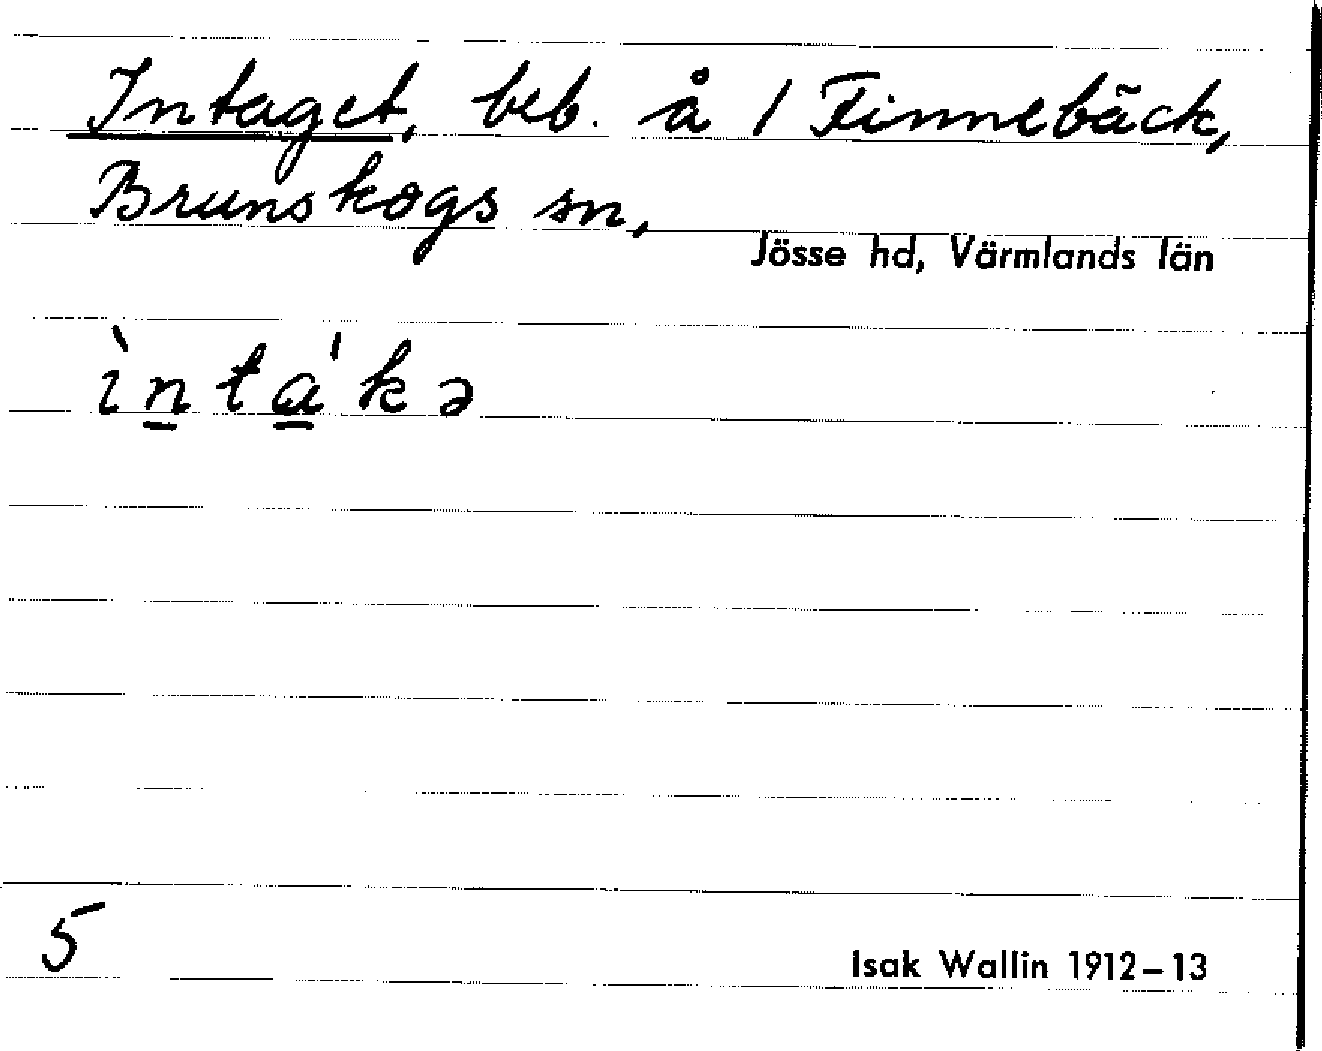 Intaget, beb. å / Finnebäck,
Brunskogs sn,
Jösse hd, Värmlands län
ìn̲ta̲'kə
5
Isak Wallin 1912–13